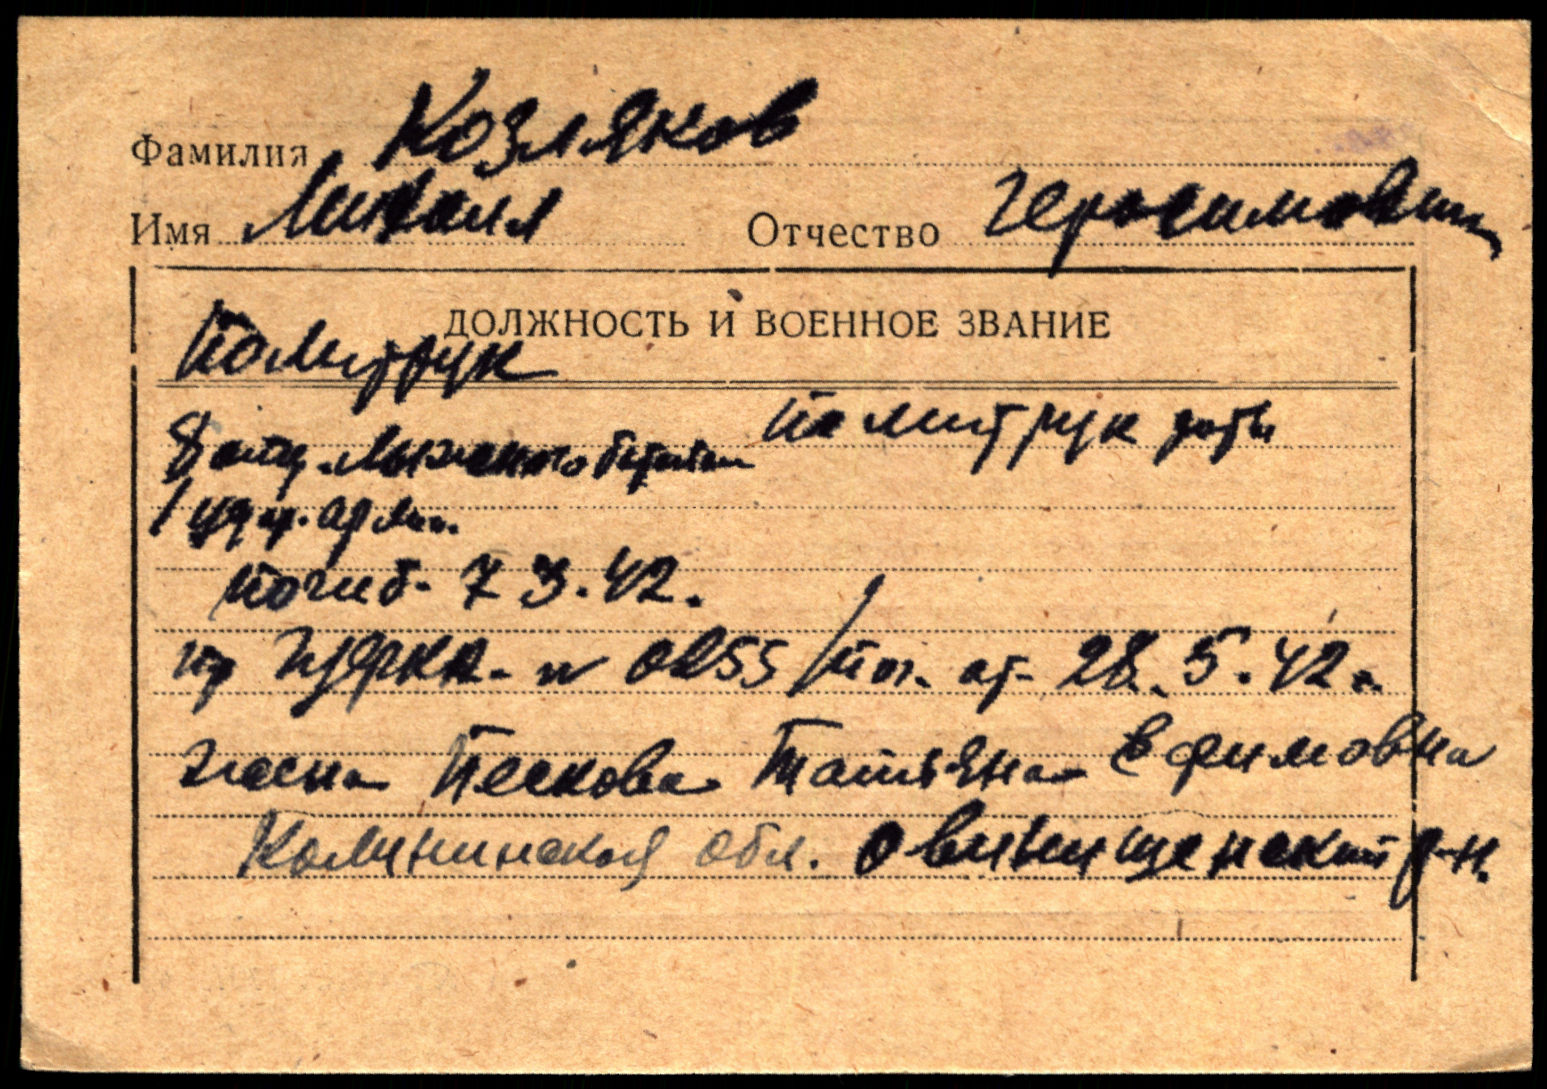 Фамилия Козляков
Имя Михаил Отчество Герасимович
ДОЛЖНОСТЬ И ВОЕННОЕ ЗВАНИЕ
Политрук
политрук роты
8 отд. лыжного баталь
1 удар. арми.
погиб. 7 3.42.
пр ГУФККА. N 0255/пог. от 28.5.42г.
жена Пескова Татьяна Ефимовна
Калининская обл. Овинищенский р-н.